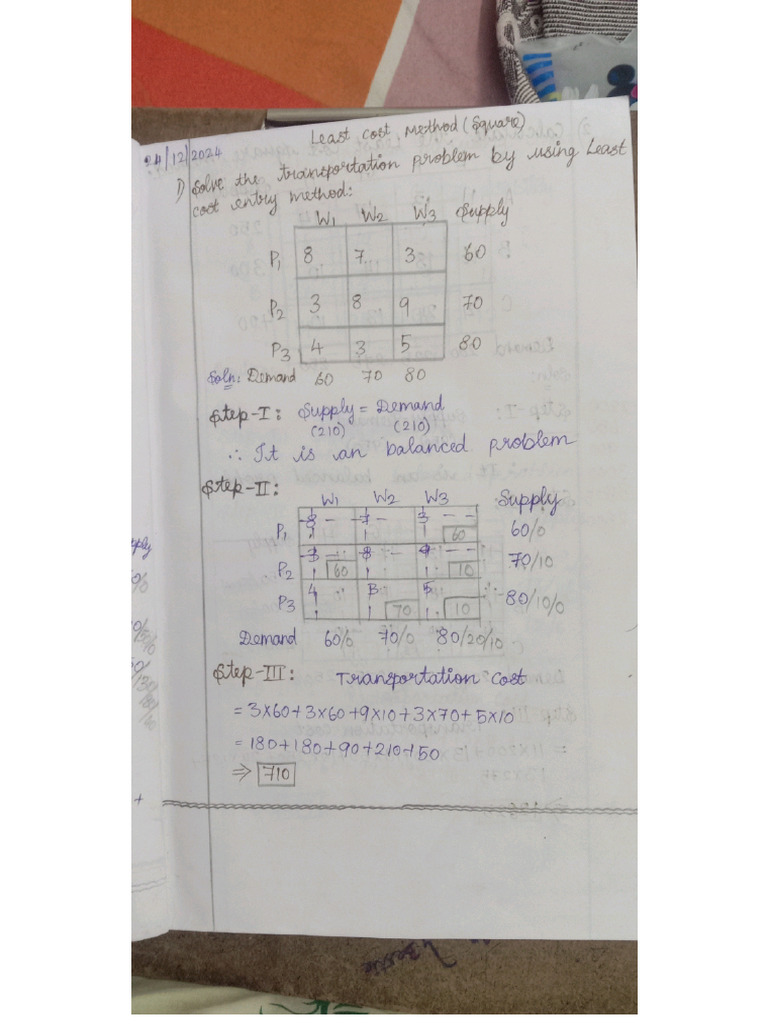 Least Cost Method (Square)
24/12/2024
1) Solve the transportation problem by using Least
cost entry method:
W1 W2 W3 Supply
P1 8 7 3 60
P2 3 8 9 70
P3 4 3 5 80
Soln: Demand 60 70 80
Step-I: Supply = Demand
(210) (210)
∴ It is an balanced problem
Step-II:
W1 W2 W3 Supply
P1 8 7 3 60 60/0
P2 3 60 8 9 10 70/10
P3 4 3 70 5 10 80/10/0
Demand 60/0 70/0 80/20/10
Step-III: Transportation cost
= 3×60+3×60+9×10+3×70+5×10
= 180+180+90+210+50
⇒ 710